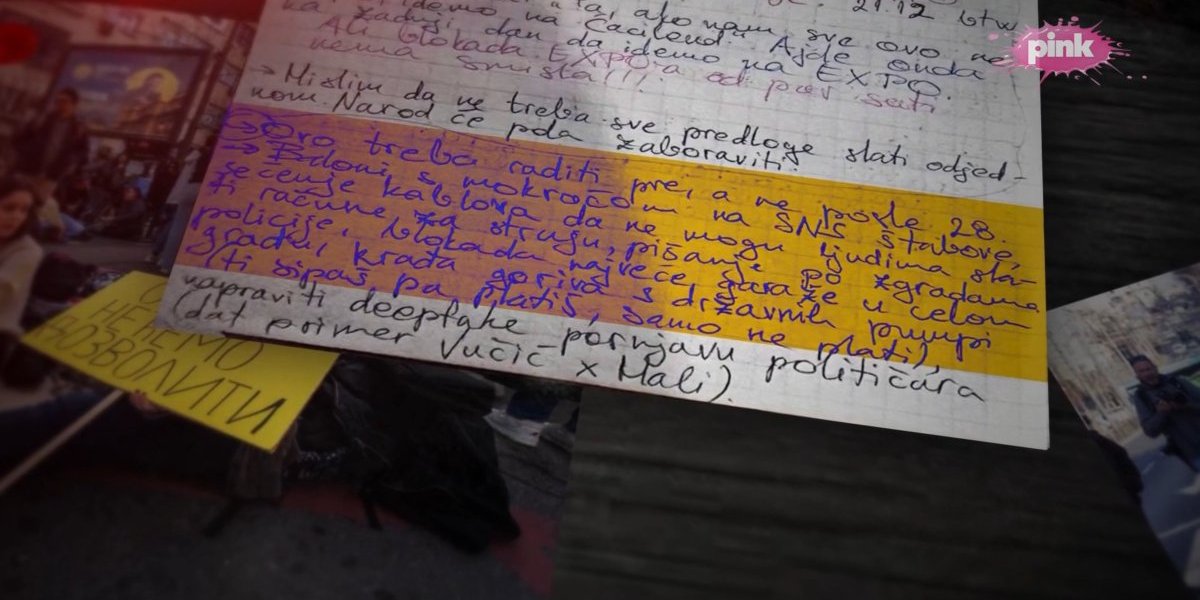 idemo na ako nam sve ovo ne 21.12 btw
zadnji dan Ćaciland. Ajde onda
Ali blokada da idemo na EXPO.
nema smisla!!! EXPO-a od par sati
→ Mislim da ne treba sve predloge slati odjed-
nom. Narod će pola zaboraviti.
→ Ovo treba raditi pre, a ne posle 28.
→ Baloni s mokraćom na SNS štabove,
sečenje kablova da ne mogu ljudima sla-
ti račune za struju, pišanje po zgradama
policije, blokada najveće garaže u celom
gradu, krađa goriva s državnih pumpi
(ti sipaš, pa platiš, samo ne plati),
napraviti deepfake pornjavu političara
(dat primer Vučić x Mali).
pink
НЕЋЕМО
ДОЗВОЛИТИ